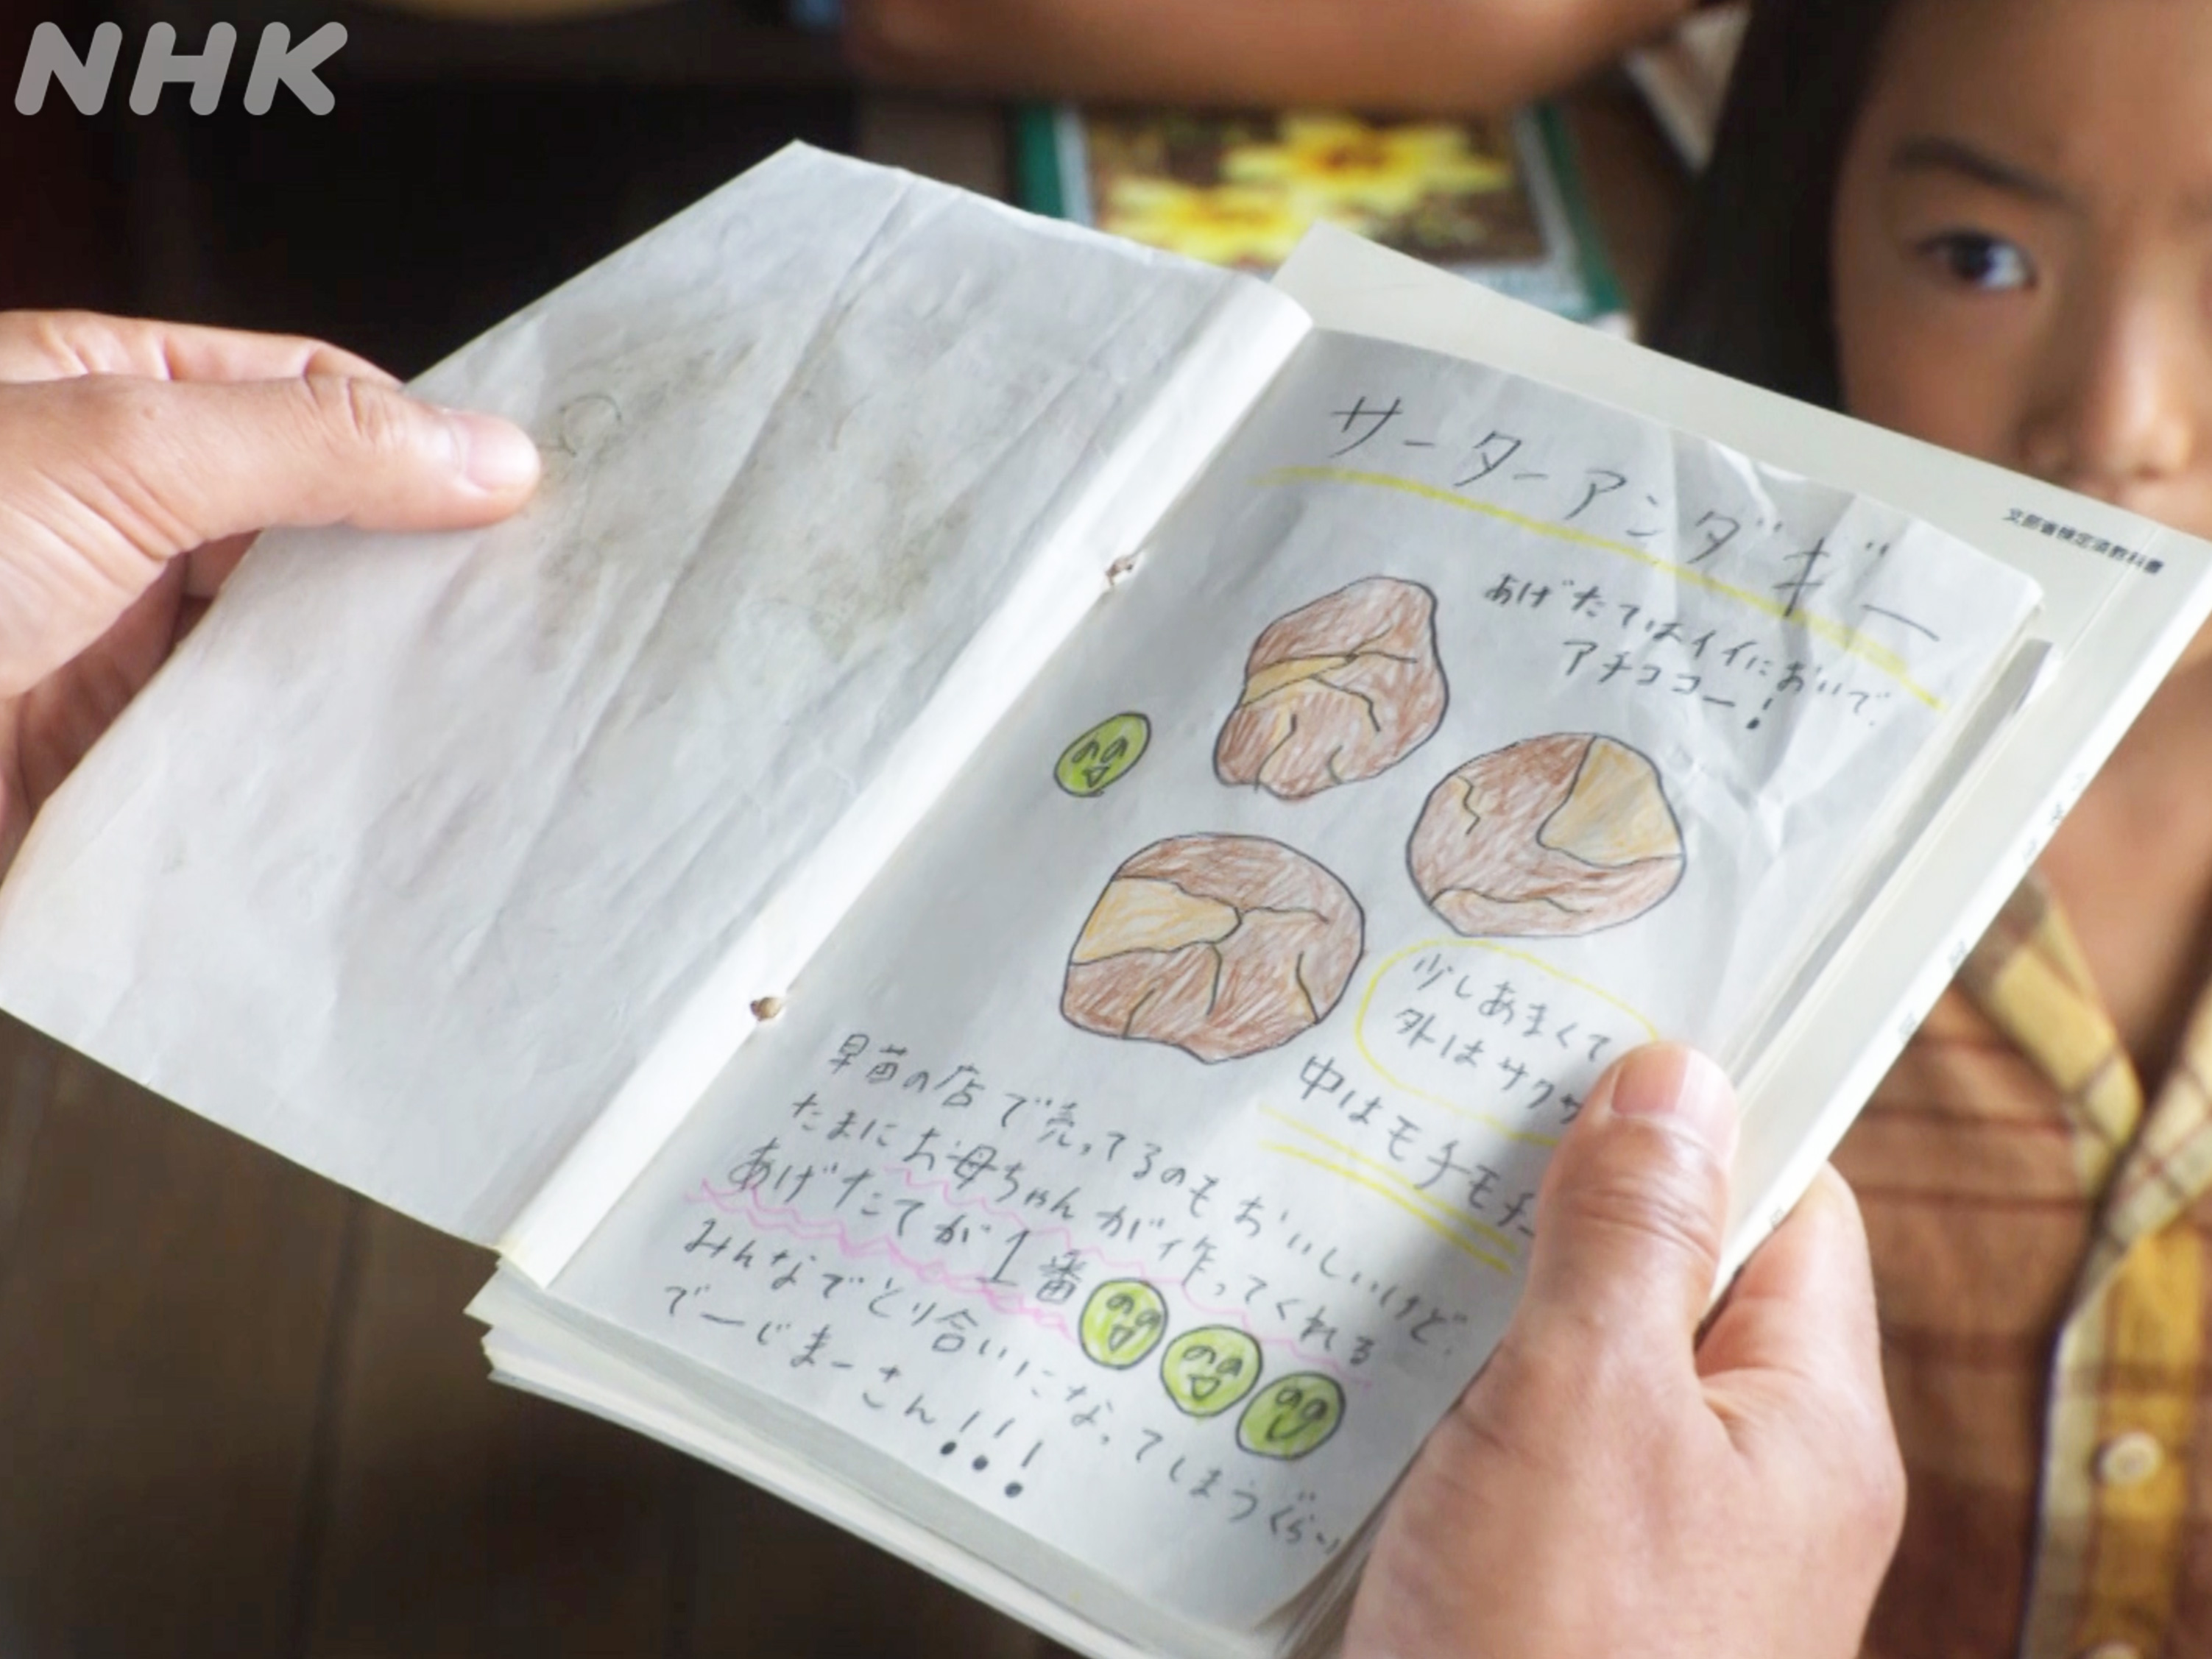 NHK
文部省検定済教科書
サーターアンダギー
あげたてはイイにおいで、
アチココー!
少しあまくて
外はサクサ
中はモチモチ
早苗の店で売ってるのもおいしいけど、
たまにお母ちゃんが作ってくれる
あげたてが1番
みんなでとり合いになってしまうぐらい
でーじまーさん!!!